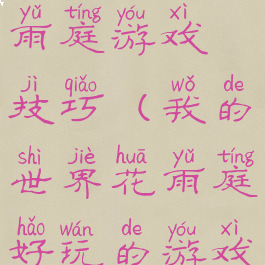 yǔ tíng yóu xì
雨庭游戏
jì qiǎo wǒ de
技巧(我的
shì jiè huā yǔ tíng
世界花雨庭
hǎo wán de yóu xì
好玩的游戏